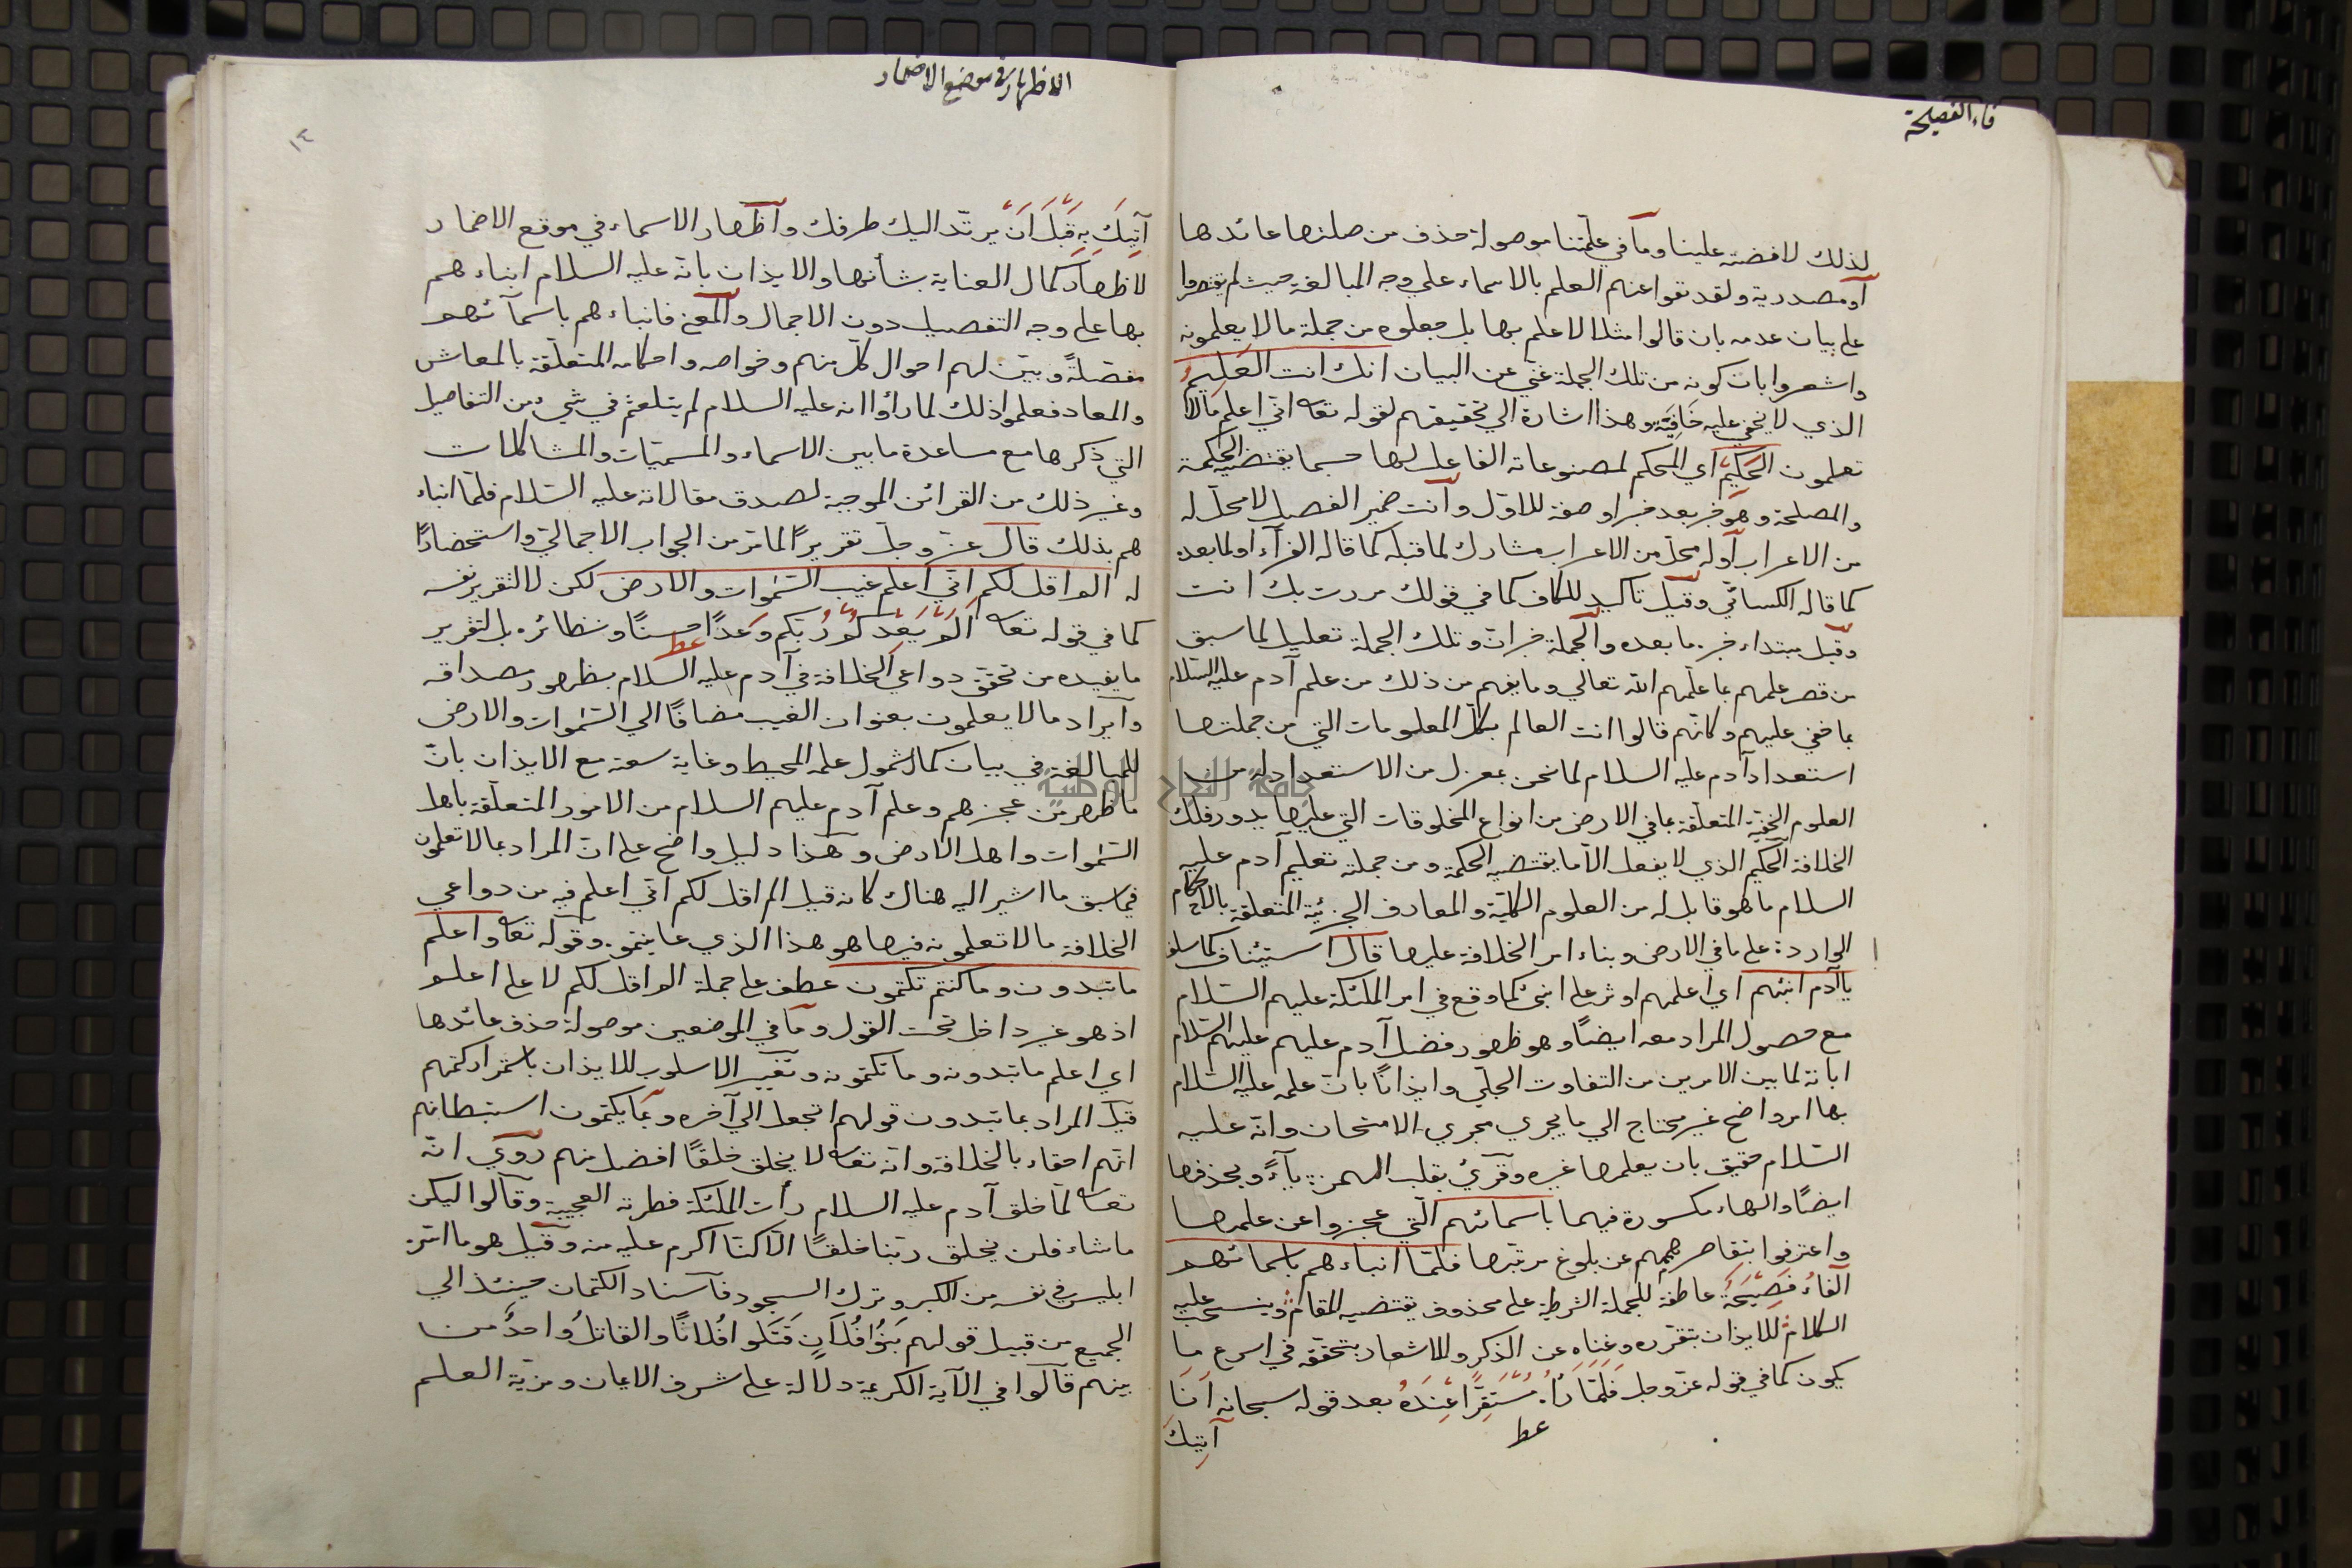 فاء الفصيحة
لذلك لافضته علينا وما في علمتنا موصولة حذف من صلتها عائدها
أو مصدرية ولقد نفوا عنهم العلم بالاسماء على وجه المبالغة حيث لم يقتصروا
على بيان عدمه بان قالوا مثلا لا علم بها بل جعلوه من جملة ما لا يعلمونه
واشعروا بان كونه من تلك الجملة غني عن البيان انك انت العَلِيمُ
الذي لا يخفي عليه خَافِيَة وهذا اشارة الي تحقيقهم لقوله تعا اني اعلم مَا لا
تعلمون الحَكِيمُ اي المحكم لمصنوعاته الفاعل لها حسبما يقتضيه الحكمة
والمصلحة وهو خبر بعد خبر او صفة للاول وأنت ضمير الفصل لا محل له
من الاعراب أوله محل من الاعراب مشارك لما قبله كما قاله الفرآء او لما بعده
كما قاله الكسائي وقيل تاكيد للكاف كما في قولك مررت بك انت
وقيل مبتداء خبره ما بعده والجملة خبر ان وتلك الجملة تعليل لما سبق
من قصر علمهم بما علمهم الله تعالي وما يفهم من ذلك من علم آدم عليه السلام
بما خفي عليهم وكانهم قالوا انت العالم بكل المعلومات التي من جملتها
استعداد آدم عليه السلام لما نحن بمعزل من الاستعداد له من
العلوم الخفية المتعلقة بما في الارض من انواع المخلوقات التي عليها يدور فلك
الخلافة الحكيم الذي لا يفعل الا ما يقتضيه الحكمة ومن جملته تعليم آدم عليه
السلام ما هو قابل له من العلوم الكلية والمعارف الجزئية المتعلقة بالاحكام
الواردة على ما في الارض وبناء امر الخلافة عليها قال استيناف كما سلف
يا آدم انبئهم اي اعلمهم اوثر على انبئ كما وقع في امر الملئكة عليهم السلام
مع حصول المراد معه ايضًا وهو ظهور فضل آدم عليهم عليهم السلام
ابانة لما بين الامرين من التفاوت الجلي وايذانًا بان علمه عليه السلام
بها امر واضح غير محتاج الي ما يجري مجري الامتحان وانه عليه
السلام حقيق بان يعلمها غيره وقرئ بقلب الهمزة يآءً وبحذفها
ايضًا والهاء مكسورة فيهما باسمائهم التي عجزوا عن علمها
واعترفوا بتقاصر هممهم عن بلوغ مرتبتها فلمّا انباءهم باسمائهم
الفاءُ فَصِيْحَةٌ عاطفة للجملة الشرطية على محذوف يقتضيه المقام وينسحب عليه
الكلام للايذان بتقرره وغناه عن الذكر وللاشعار بتحققه في اسرع ما
يكون كما في قوله عزوجل فَلَمَّا رَآهُ مُسْتَقِرًّا عِنْدَهُ بعد قوله سبحانه أَنَا
آتِيكَ
عط
الاظهار في موضع الاضمار
١٢
آتِيكَ بِهِ قَبْلَ أَنْ يرتدّ اليك طرفك وأظهار الاسماء في موقع الاضمار
لاظهار كمال العناية بشأنها والايذان بانه عليه السلام انباءهم
بها على وجه التفصيل دون الاجمال والمعني فانباءهم باسمآئهم
مفصلةً وبيّن لهم احوال كل منهم وخواصه واحكامه المتعلقة بالمعاش
والمعاد فعلموا ذلك لما رأوا انه عليه السلام لم يتلعثم في شيء من التفاصيل
التي ذكرها مع مساعدة ما بين الاسماء والمسميّات والمشاكلات
وغير ذلك من القرائن الموجبة لصدق مقالاته عليه السلام فلمّا انباء
هم بذلك قال عزوجل تقريرًا لما مر من الجواب الاجمالي واستحضارًا
له الم اقل لكم اني اعلم غيب السموات والارض لكن لا لتقرير نفسه
كما في قوله تعا أَلَمْ يَعِدْكُمْ رَبُّكم وَعْدًا حسنًا ونظائره بل لتقرير
عط
ما يفيده من تحقق دواعي الخلافة في آدم عليه السلام بظهور مصداقه
وأيراد ما لا يعلمون بعنوان الغيب مضافًا الي السموات والارض
للمبالغة في بيان كمال شمول علمه المحيط وغاية سعته مع الايذان بانّ
ما ظهر من عجزهم وعلم آدم عليهم السلام من الامور المتعلقة باهل
السموات واهل الارض وهذا دليل واضح على ان المراد بما لا تعلمون
فيما سبق ما اشير اليه هناك كانه قيل الم اقل لكم اني اعلم فيه من دواعي
الخلافة ما لا تعلمونه فيها هو هذا الذي عاينتموه وقوله تعا واعلم
ما تبدون وما كنتم تكتمون عطف على جملة الم اقل لكم لا على اعلم
اذ هو غير داخل تحت القول وما في الموضعين موصولة حذف عائدها
اي اعلم ما تبدونه وما تكتمونه وتغيير الاسلوب للايذان باستمرار كتمهم
قيل المراد بما تبدون قولهم اتجعل الي آخره وبما يكتمون استبطانهم
انهم احقاء بالخلافة وانه تعا لا يخلق خلقًا افضل منهم روي انه
تعا لمّا خلق آدم عليه السلام رأت الملئكة فطرته العجيبة وقالوا ليكن
ما شاء فلن يخلق ربنا خلقًا الا كنّا اكرم عليه منه وقيل هو ما اسره
ابليس في نفسه من الكبر وترك السجود فآسناد الكتمان حينئذ الي
الجميع من قبيل قولهم بَنُو فُلَانٍ قَتَلُوا فُلانًا والقاتلُ واحدٌ من
بينهم قآلوا في الآية الكريمة دلالة على شرف الانسان ومزية العلم
جامعة النجاح الوطنية